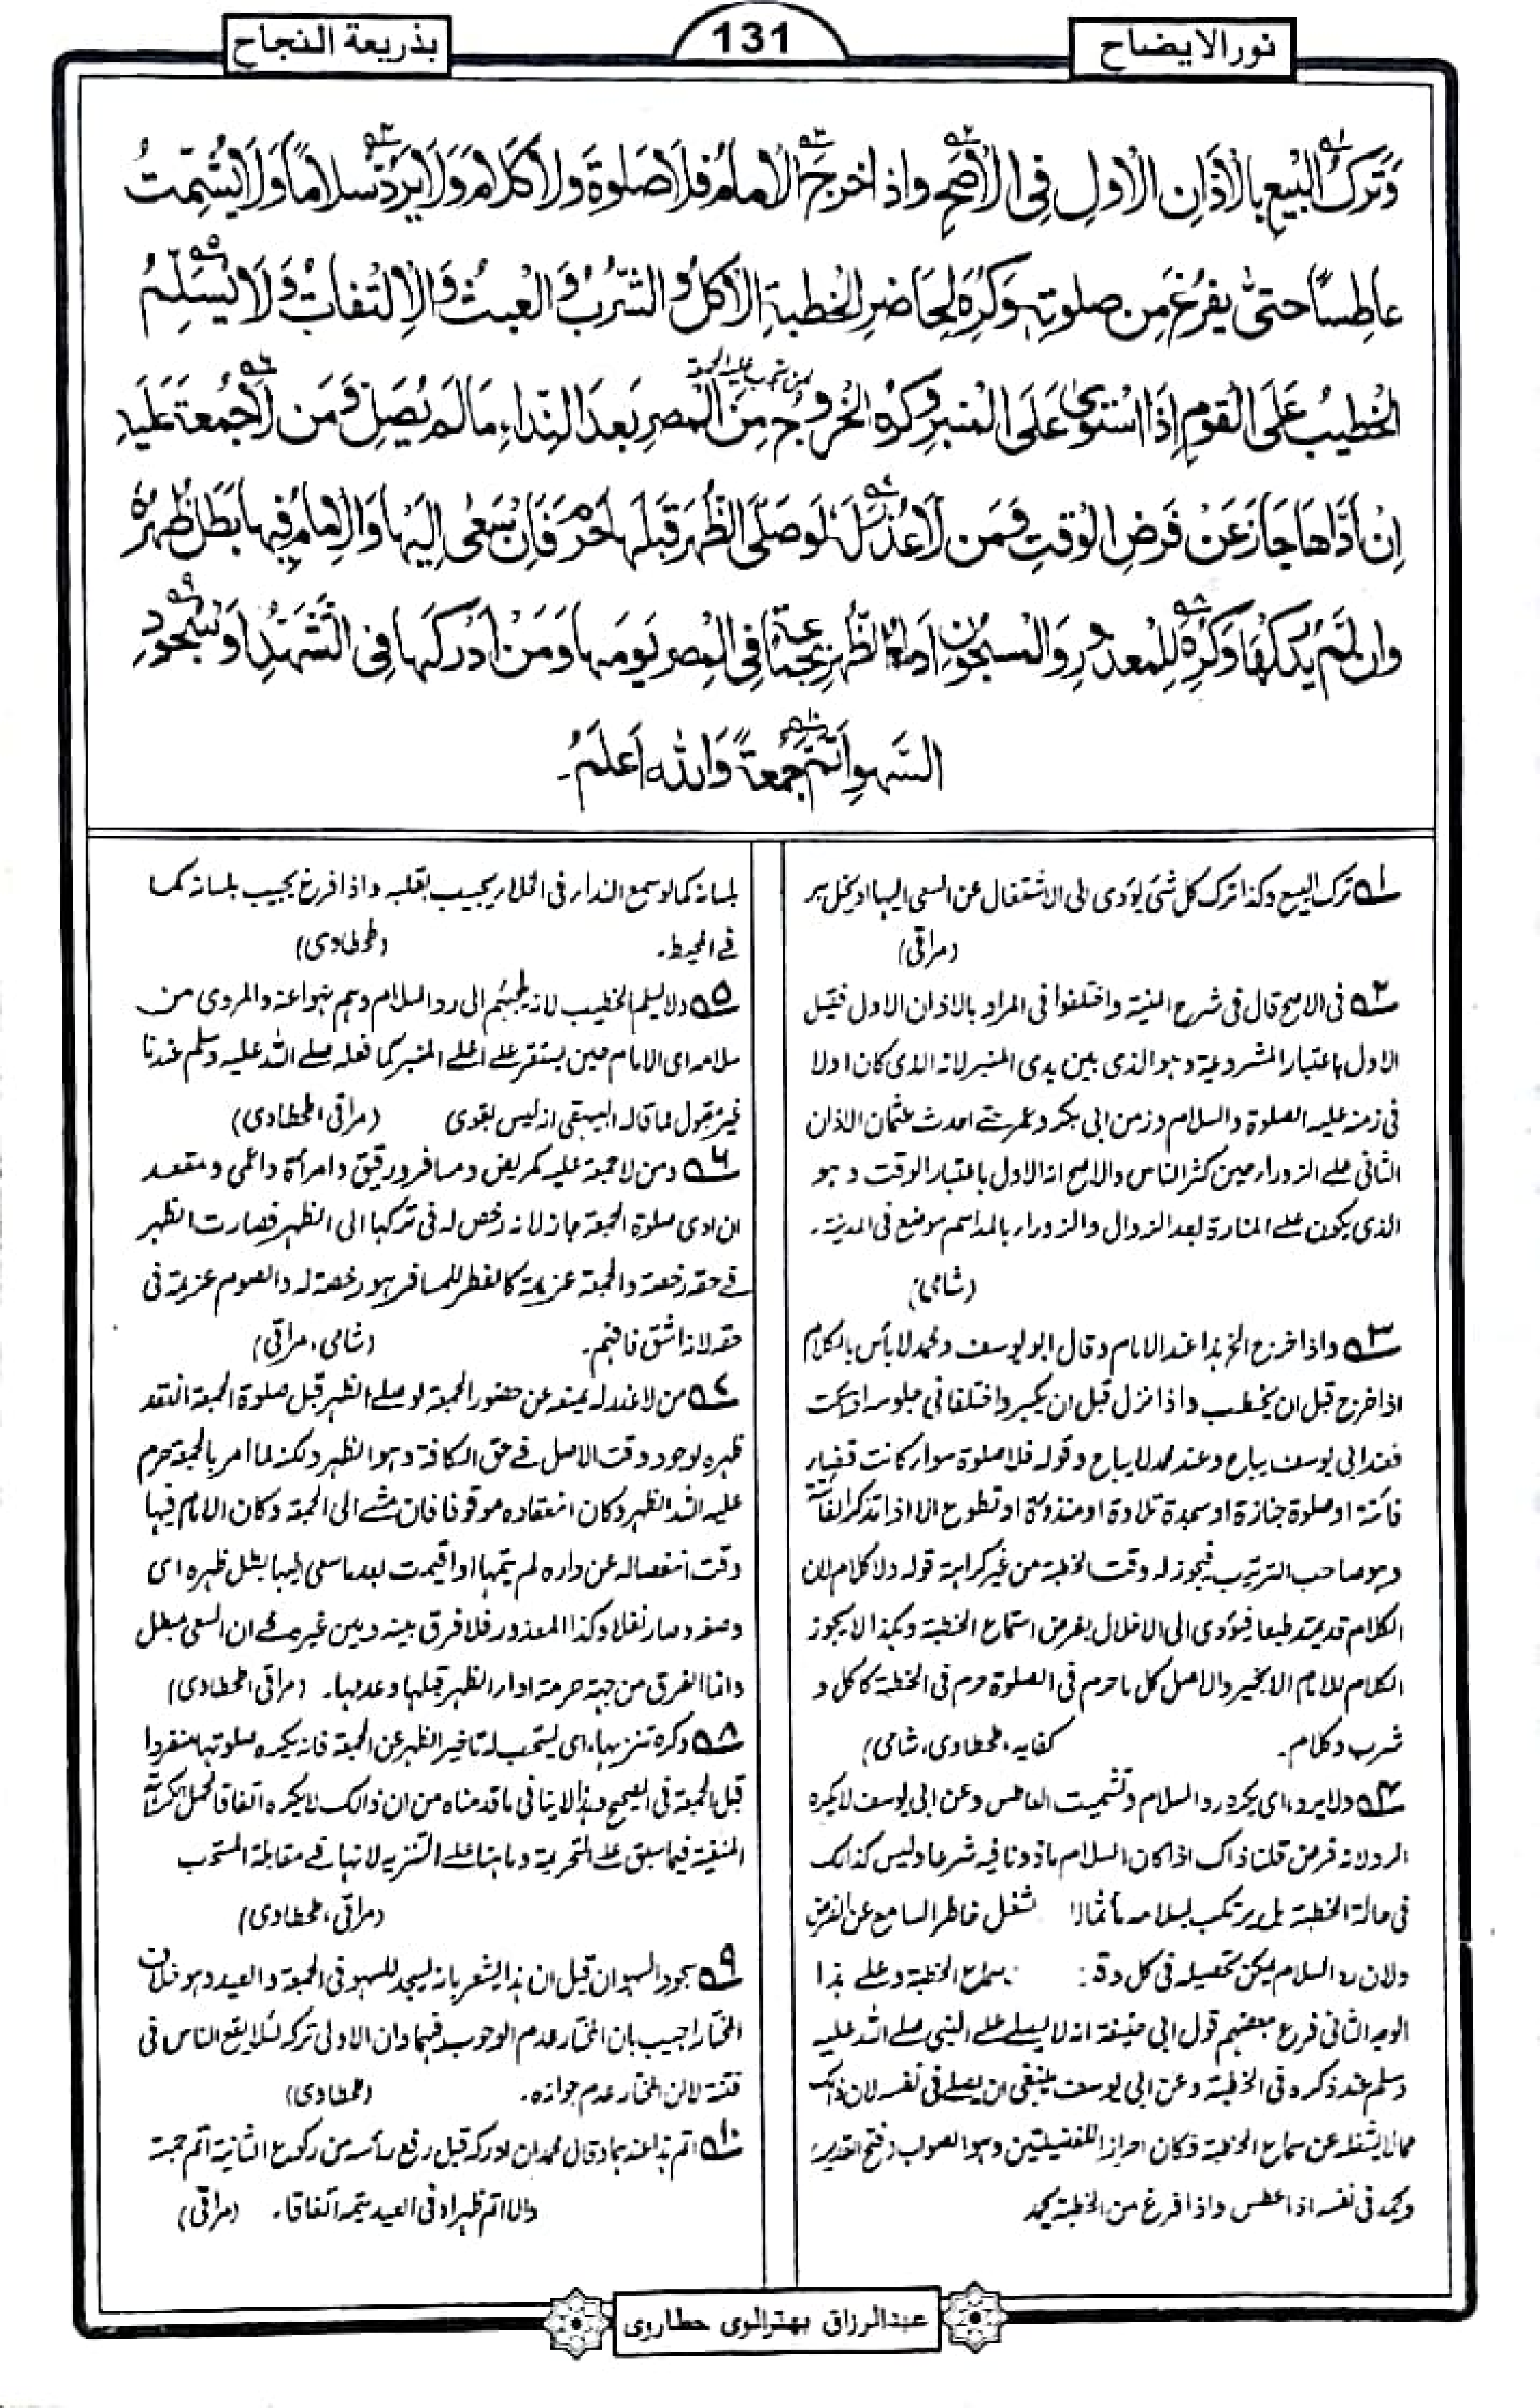 نورالايضاح
131
بذريعة النجاح
وَتَرْكُ الْبَيْعِ بِالْاَذَانِ الْاَوَّلِ فِى الْاَصَحِّ وَاِذَا خَرَجَ الْاِمَامُ فَلَا صَلٰوةَ وَلَا كَلَامَ وَلَا يَرُدُّ سَلَامًا وَلَا يُشَمِّتُ
عَاطِسًا حَتّٰى يَفْرُغَ مِنْ صَلٰوتِهٖ وَكُرِهَ لِحَاضِرِ الْخُطْبَةِ الْاَكْلُ وَالشُّرْبُ وَالْعَبَثُ وَالْاِلْتِفَاتُ وَلَا يُسَلِّمُ
الْخَطِيْبُ عَلَى الْقَوْمِ اِذَا اسْتَوٰى عَلَى الْمِنْبَرِ وَكُرِهَ الْخُرُوْجُ مِنَ الْمِصْرِ بَعْدَ النِّدَاءِ مَا لَمْ يُصَلِّ وَمَنْ لَا جُمُعَةَ عَلَيْهِ
اِنْ اَدَّاهَا جَازَ عَنْ فَرْضِ الْوَقْتِ وَمَنْ لَا عُذْرَ لَهٗ لَوْ صَلَّى الظُّهْرَ قَبْلَهَا حَرُمَ فَاِنْ سَعٰى اِلَيْهَا وَالْاِمَامُ فِيْهَا بَطَلَ ظُهْرُهٗ
وَاِنْ لَمْ يُدْرِكْهَا وَكُرِهَ لِلْمَعْذُوْرِ وَالْمَسْجُوْنِ اَدَاءُ الظُّهْرِ بِجَمَاعَةٍ فِى الْمِصْرِ يَوْمَهَا وَمَنْ اَدْرَكَهَا فِى التَّشَهُّدِ اَوْ سُجُوْدِ
السَّهْوِ اَتَمَّ جُمُعَةً وَاللّٰهُ اَعْلَمُ۔
۱ ترك البيع وكذا ترك كل شئ يؤدى الى الاشتغال عن السعى اليها او يخل به
(مراقى)
۲ فى الاصح قال فى شرح المنية واختلفوا فى المراد بالاذان الاول فقيل
الاول باعتبار المشروعية وهو الذى بين يدى المنبر لانه الذى كان اولا
فى زمنه عليه الصلوة والسلام وزمن ابى بكر وعمر حتى احدث عثمان الاذان
الثانى على الزوراء حين كثر الناس والاصح انه الاول باعتبار الوقت وهو
الذى يكون على المنارة بعد الزوال والزوراء بالمد اسم موضع فى المدينة۔
(شامى)
۳ واذا خرج الخ هذا عند الامام وقال ابو يوسف ومحمد لا بأس بالكلام
اذا خرج قبل ان يخطب واذا نزل قبل ان يكبر واختلفا فى جلوسه اذا سكت
فعند ابى يوسف يباح وعند محمد لا يباح وقوله فلا صلوة سواء كانت قضاء
فائتة او صلوة جنازة او سجدة تلاوة او منذورة او تطوع الا اذا تذكر الفائتة
وهو صاحب الترتيب فيجوز له وقت الخطبة من غير كراهة قوله ولا كلام لان
الكلام قد يمتد طبعا فيؤدى الى الاخلال بفرض استماع الخطبة وهكذا لا يجوز
الكلام للامام الا بخير والاصل كل ما حرم فى الصلوة حرم فى الخطبة كاكل و
شرب وكلام۔ كفايه، طحطاوى، شامى)
۴ ولا يرد، اى يكره رد السلام وتشميت العاطس وعن ابى يوسف لا يكره
الرد لانه فرض قلنا ذاك اذا كان السلام ماذونا فيه شرعا وليس كذالك
فى حالة الخطبة بل يرتكب بسلامه مأثما لا شغل خاطر السامع عن الفرض
ولان رد السلام يمكن تحصيله فى كل وقت سماع الخطبة وعلى هذا
الوجه الثانى فرع بعضهم قول ابى حنيفة انه لا يصلى على النبى صلى الله عليه
وسلم عند ذكره فى الخطبة وعن ابى يوسف ينبغى ان يصلى فى نفسه لان ذالك
مما لا يشغله عن سماع الخطبة فكان احراز الفضيلتين وهو الصواب (فتح القدير)
ويحمد فى نفسه اذا عطس واذا فرغ من الخطبة يحمد
بلسانه كما لو سمع النداء فى الخلاء يجيب بقلبه واذا فرغ يجيب بلسانه كما
فى المحيط۔ (طحطاوى)
۵ ولا يسلم الخطيب لانه يلجئهم الى رد السلام وهم نهوا عنه والمروى من
سلامه اى الامام حين يستقر على اعلى المنبر كما فعله صلى الله عليه وسلم عندنا
غير مقبول لما قاله البيهقى انه ليس بقوى (مراقى، طحطاوى)
۶ ومن لا جمعة عليه كمريض ومسافر ورقيق وامرأة واعمى ومقعد
ان ادى صلوة الجمعة جاز لانه رخص له فى تركها الى الظهر فصارت الظهر
فى حقه رخصة والجمعة عزيمة كالفطر للمسافر هو رخصة له والصوم عزيمة فى
حقه لانه اشق فافهم۔ (شامى، مراقى)
۷ من لا عذر له يمنعه عن حضور الجمعة لو صلى الظهر قبل صلوة الجمعة انعقد
ظهره لوجود وقت الاصل فى حق الكافة وهو الظهر ولكنه لما امر بالجمعة حرم
عليه الظهر وكان انعقاده موقوفا فان مشى الى الجمعة وكان الامام فيها
وقت انفصاله عن داره لم يتمها او اقيمت بعد ما سعى اليها بطل ظهره اى
وصفه وصار نفلا وكذا المعذور فلا فرق بينه وبين غيره فى ان السعى مبطل
وانما الفرق من جهة حرمة اداء الظهر قبلها وعدمها۔ (مراقى، طحطاوى)
۸ وكره تنزيها، اى يستحب له تاخير الظهر عن الجمعة فانه يكره صلوتها منفردا
قبل الجمعة فى الصحيح وهذا لا ينافى ما قدمناه من ان ذالك لا يكره اتفاقا لحمل الكراهة
المنفية فيما سبق على التحريمة وما هنا على التنزيه لانها فى مقابلة المستحب
(مراقى، طحطاوى)
۹ سجود السهو ان قيل ان هذا يشعر بانه يسجد للسهو فى الجمعة والعيد وهو خلاف
المختار اجيب بان المختار عدم الوجوب فيهما وان الاولى تركه لئلا يقع الناس فى
فتنة لا ان المختار عدم جوازه۔ (طحطاوى)
۱۰ اتم هذا عندهما وقال محمد ان ادركه قبل رفع رأسه من ركوع الثانية اتم جمعة
والا اتم ظهرا وفى العيد يتمه اتفاقا۔ (مراقى)
عبدالرزاق بهترالوى حطاروى